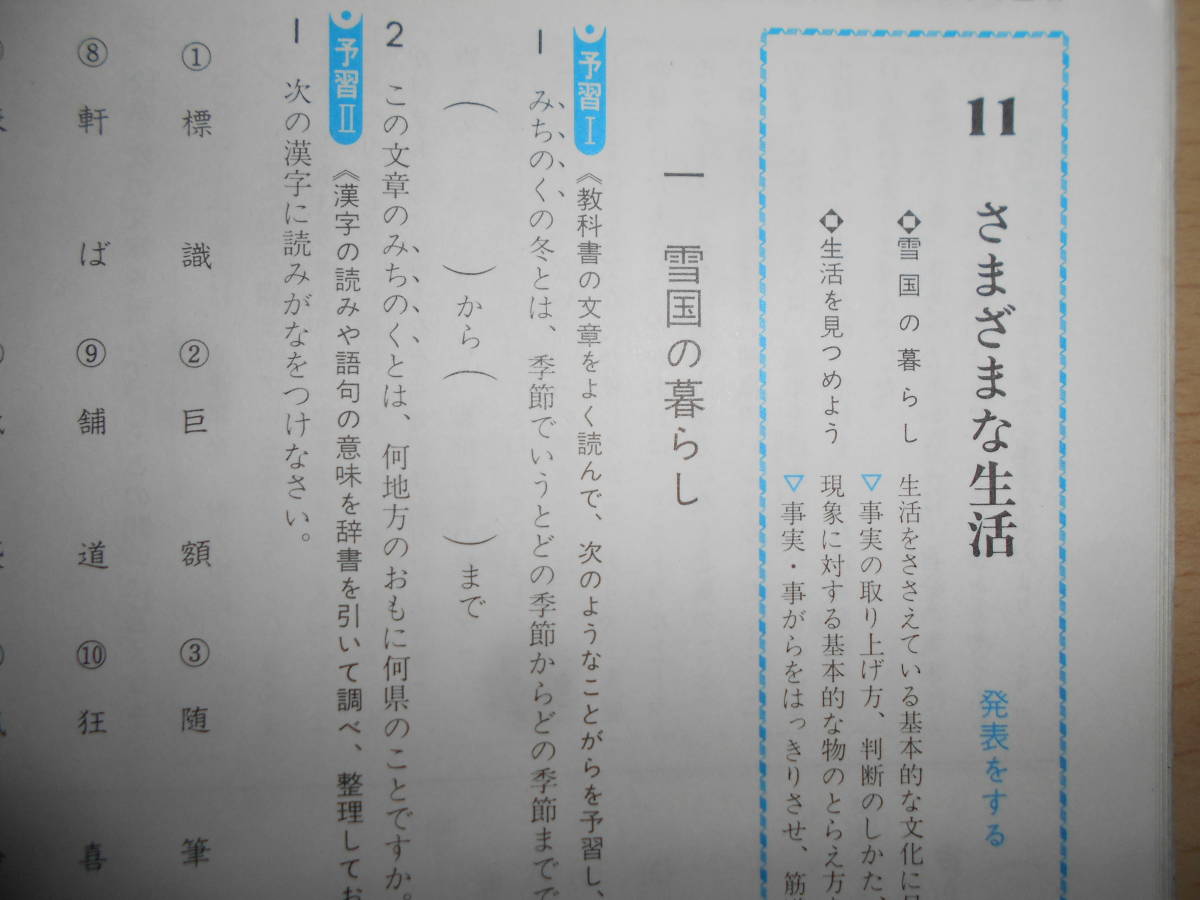 11 さまざまな生活 発表をする
雪国の暮らし 生活をささえている基本的な文化に
▽事実の取り上げ方、判断のしかた、
生活を見つめよう 現象に対する基本的な物のとらえ方
▽事実・事がらをはっきりさせ、筋
一 雪国の暮らし
予習Ⅰ 《教科書の文章をよく読んで、次のようなことがらを予習し、
1 みちのくの冬とは、季節でいうとどの季節からどの季節までで
( )から( )まで
2 この文章のみちのくとは、何地方のおもに何県のことですか。
予習Ⅱ 《漢字の読みや語句の意味を辞書を引いて調べ、整理してお
1 次の漢字に読みがなをつけなさい。
① 標識 ② 巨額 ③ 随筆
⑧ 軒ば ⑨ 舗道 ⑩ 狂喜